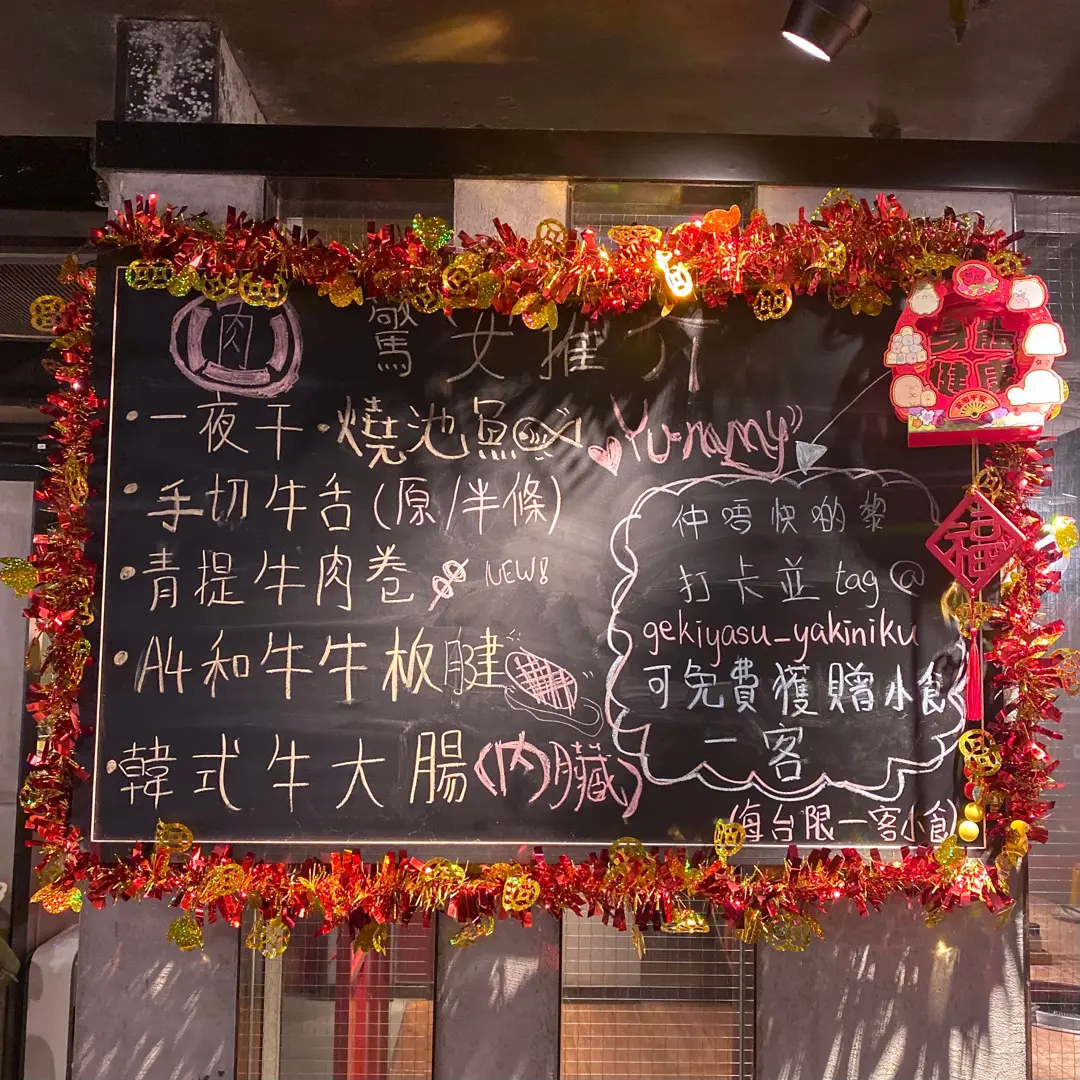 肉
驚安推介
・一夜干・燒池魚
Yummy"
・手切牛舌(原/半條)
・青提牛肉卷 NEW!
・A4和牛牛板腱
・韓式牛大腸(內臟)
仲唔快啲黎
打卡並tag@
gekiyasu_yakiniku
可免費獲贈小食
一客
(每台限一客小食)
身體健康
福